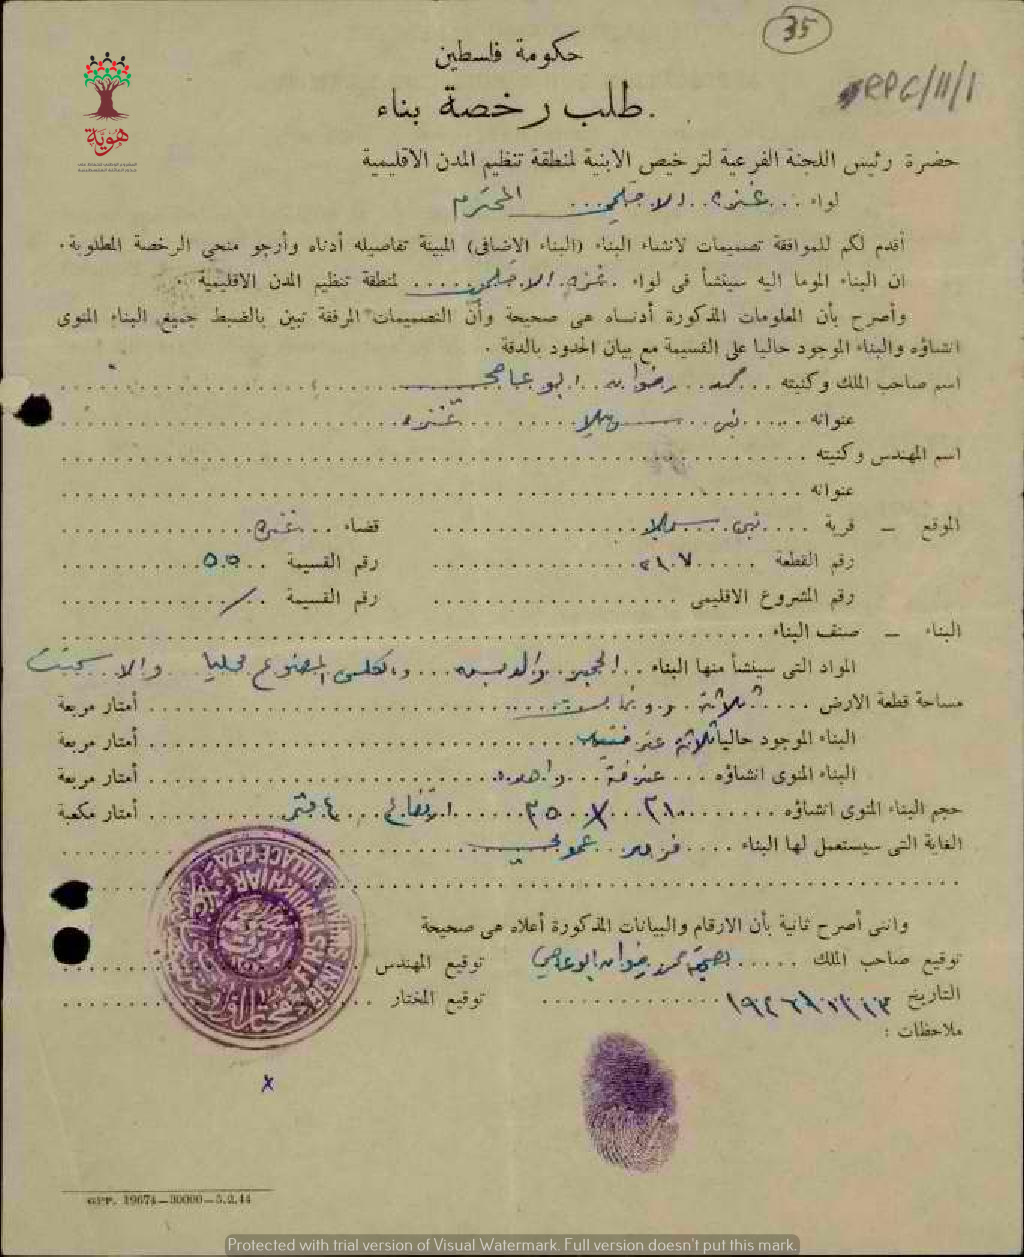 35
حكومة فلسطين
RPC/11/1
طلب رخصة بناء
هوية
حضرة رئيس اللجنة الفرعية لترخيص الابنية لمنطقة تنظيم المدن الاقليمية
لواء ... غزه ... المحترم
أقدم لكم للموافقة تصميمات لانشاء البناء (البناء الاضافى) المبينة تفاصيله أدناه وأرجو منحى الرخصة المطلوبة.
ان البناء الموما اليه سينشأ فى لواء غزه ... لمنطقة تنظيم المدن الاقليمية .
وأصرح بأن المعلومات المذكورة أدنــاه هى صحيحة وأن التصميمات المرفقة تبين بالضبط جميع البناء المنوى
انشاؤه والبناء الموجود حاليا على القسيمة مع بيان الحدود بالدقة .
اسم صاحب الملك وكنيته ... محمد رضوان ابو عاصي
عنوانه ... بني سهيلا ... غزه
اسم المهندس وكنيته
عنوانه
الموقع — قرية ... بني سهيلا ... قضاء ... غزه
رقم القطعة ... رقم القسيمة ... ٥٥
رقم المشروع الاقليمى ... رقم القسيمة ... /
البناء — صنف البناء
المواد التى سينشأ منها البناء .. الحجر ... المصنوع محليا والاسمنت
مساحة قطعة الارض ... ثلاثة دونمات ... أمتار مربعة
البناء الموجود حاليا ثلاثة ... أمتار مربعة
البناء المنوى انشاؤه ... غرفة واحده ... أمتار مربعة
حجم البناء المنوى انشاؤه ... ارتفاع ٤ متر ... أمتار مكعبة
الغاية التى سيستعمل لها البناء
وانى أصرح ثانية بأن الارقام والبيانات المذكورة أعلاه هى صحيحة
توقيع صاحب الملك ... بصمة محمد رضوان ابو عاصي توقيع المهندس
التاريخ ... توقيع المختار
ملاحظات :
x
GPP. 19674—30000—5.2.44
Protected with trial version of Visual Watermark. Full version doesn't put this mark.